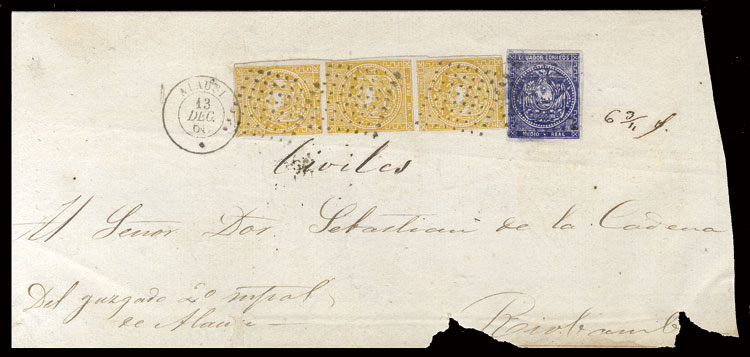 ALAUSI
13
DEC.
ECUADOR CORREOS
MEDIO REAL
6 3/11
Civiles
Al Señor Don Sebastian de la Cadena
Del juzgado 2º
de Alausi
Riobamb